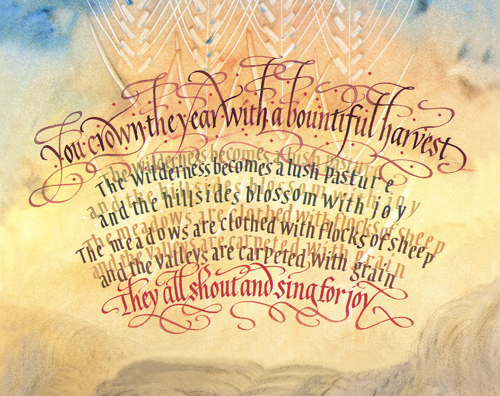 You crown the year with a bountiful harvest
The Wilderness becomes a lush pasture
and the hillsides blossom with joy
The meadows are clothed with flocks of sheep
and the valleys are carpeted with grain
They all shout and sing for joy